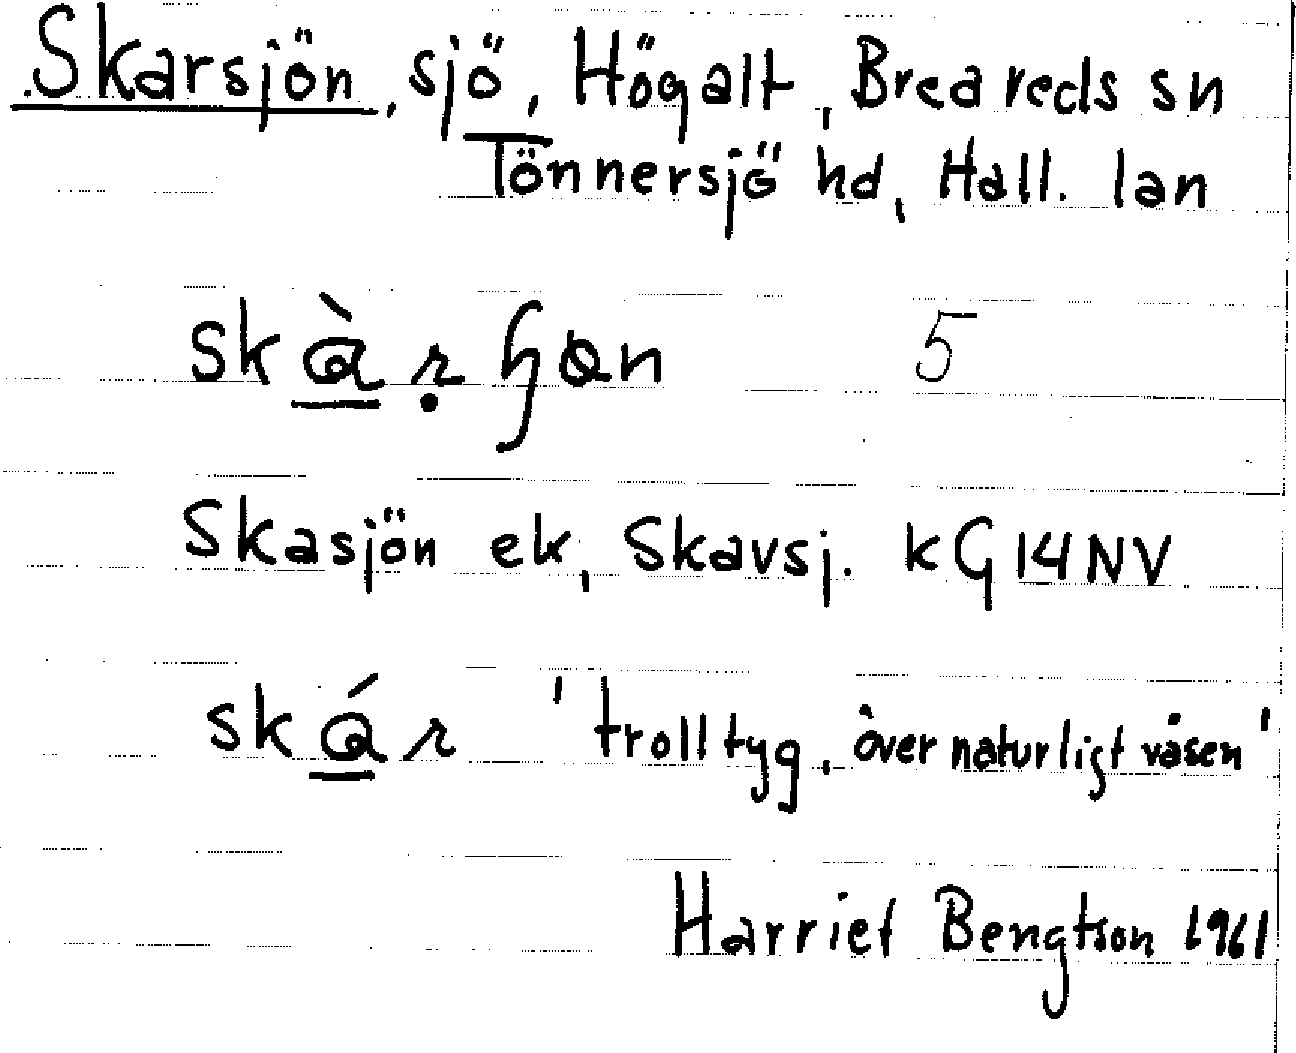 Skarsjön, sjö, Högalt, Breareds sn
Tönnersjö hd, Hall. län
5
Skasjön ek, Skavsj. kG 14 NV
'trolltyg, övernaturligt väsen'
Harriet Bengtson 1961